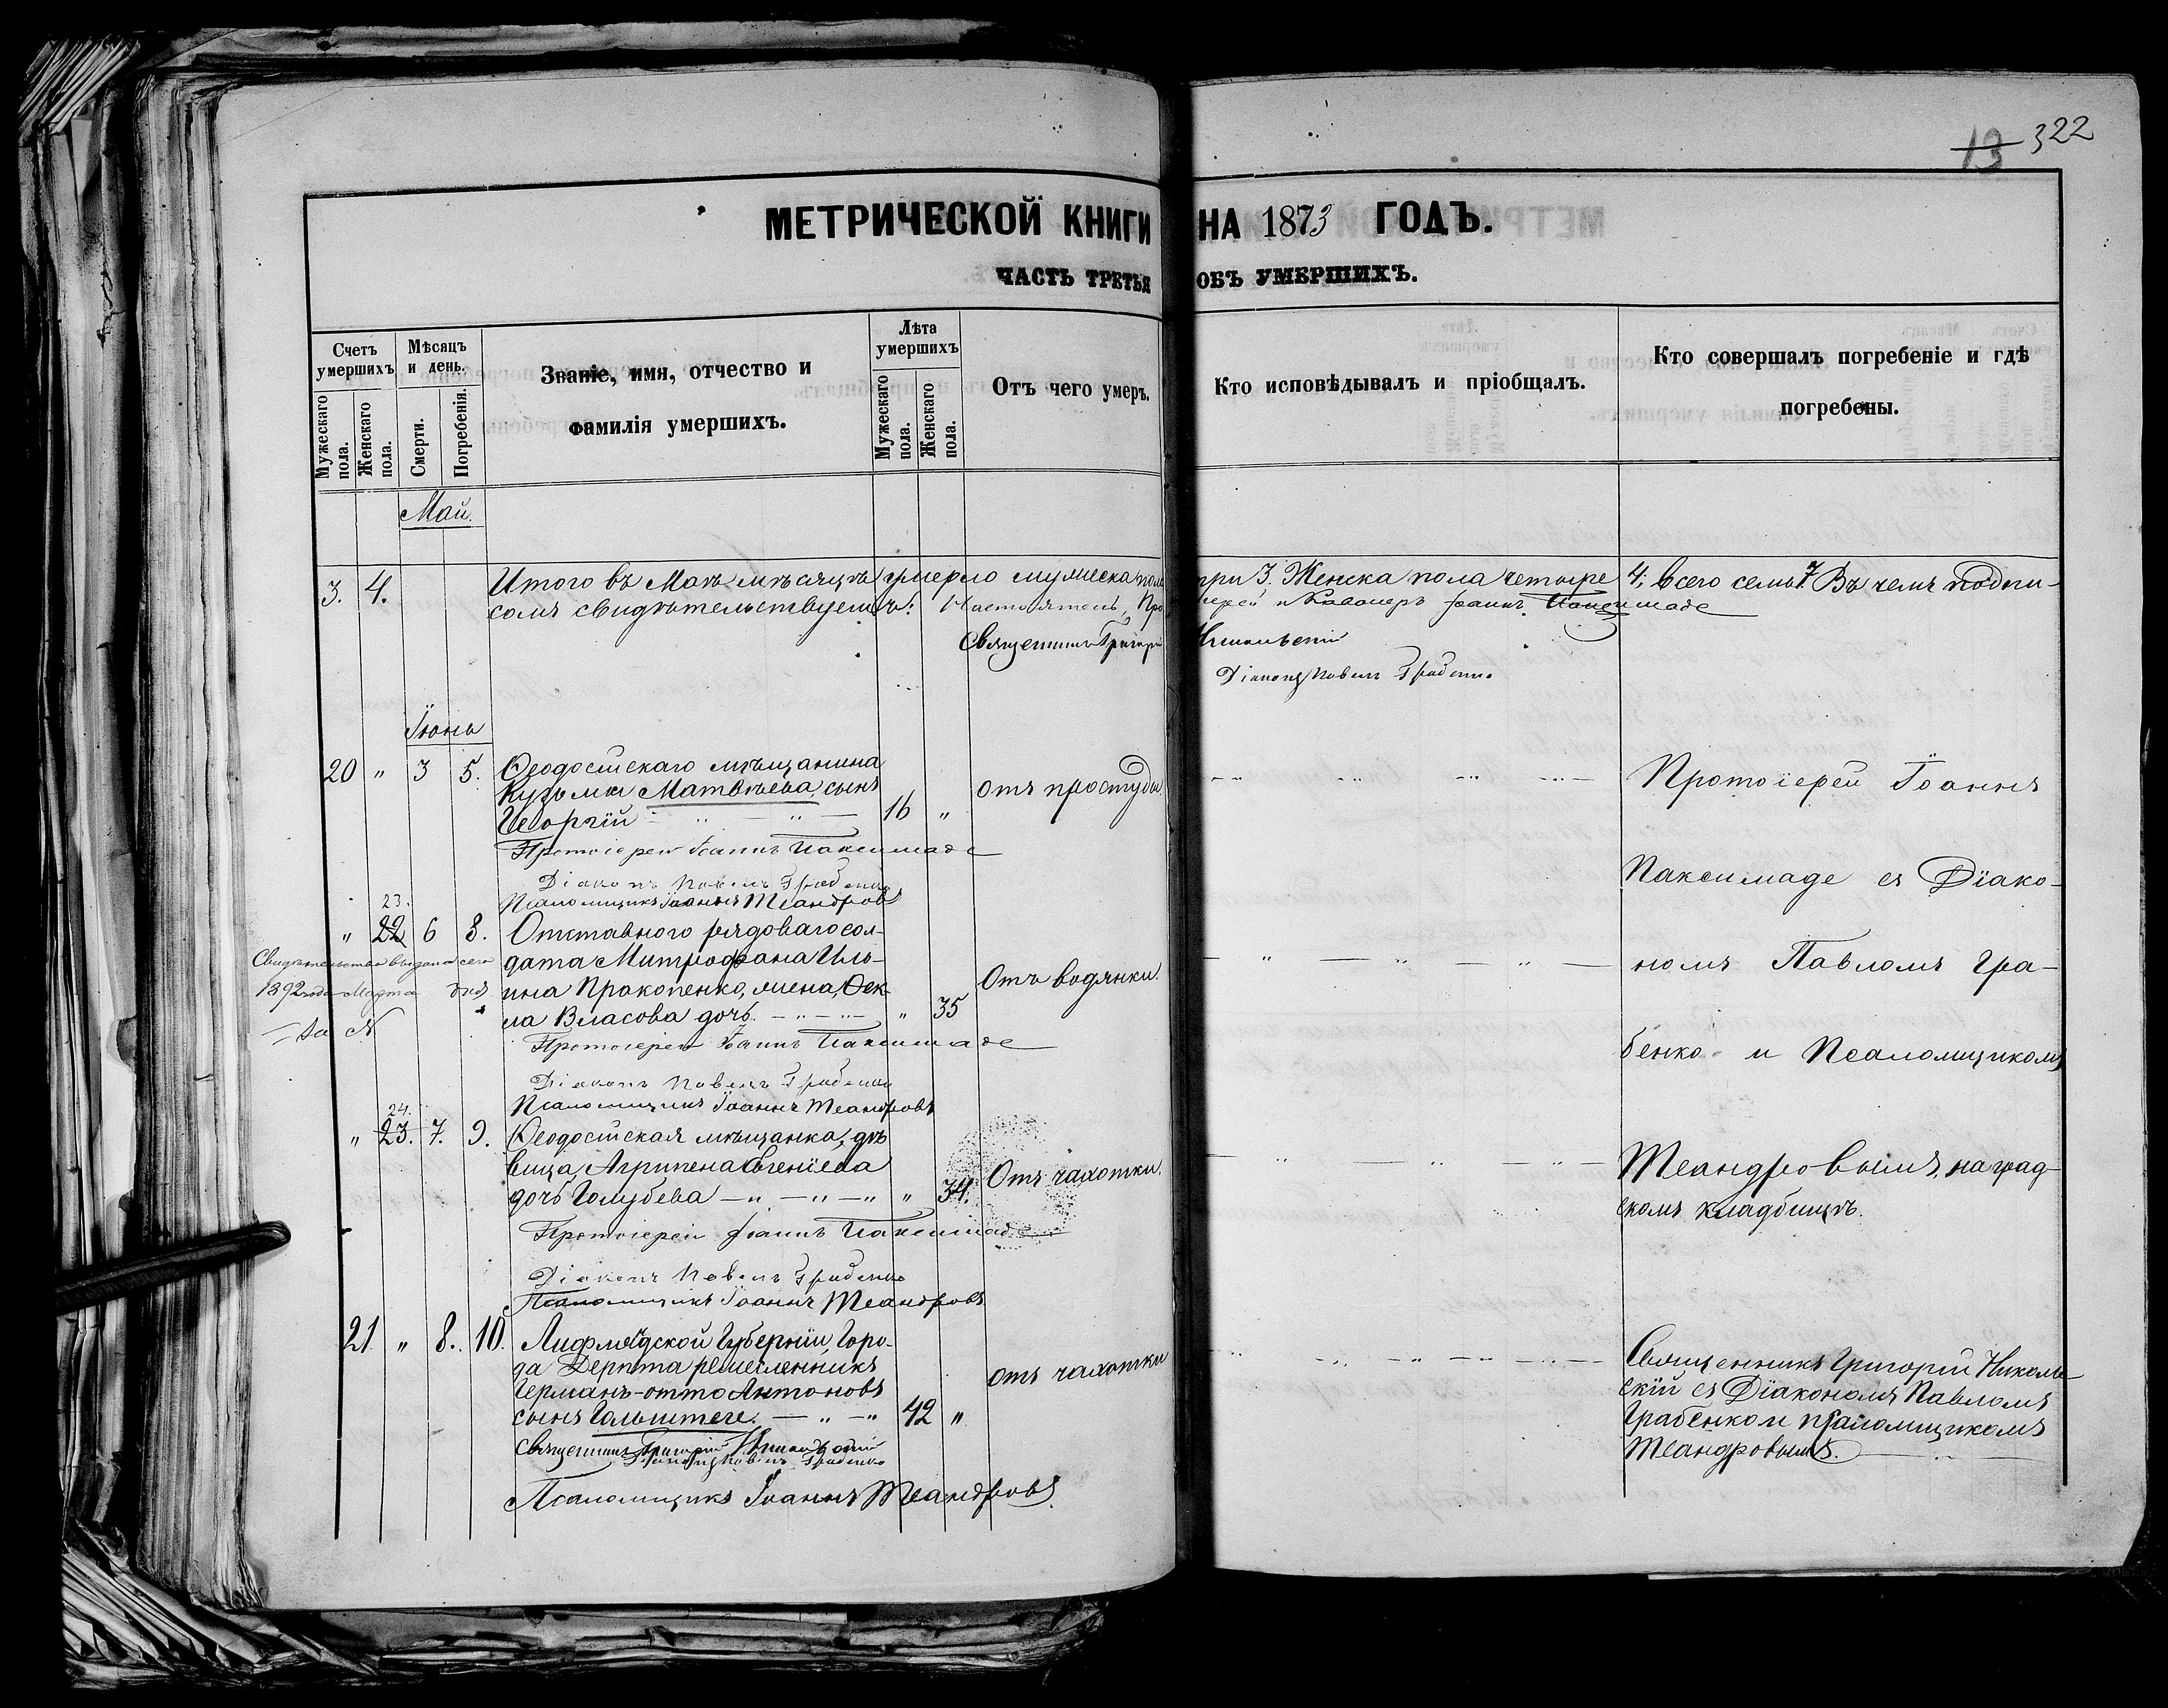 13 322
МЕТРИЧЕСКОЙ КНИГИ НА 1873 ГОДЪ.
ЧАСТЬ ТРЕТЬЯ ОБЪ УМЕРШИХЪ.
Счетъ умершихъ
Мужескаго пола.
Женскаго пола.
Мѣсяцъ и день.
Смерти.
Погребенія.
Званіе, имя, отчество и
фамилія умершихъ.
Лѣта умершихъ
Мужескаго пола.
Женскаго пола.
Отъ чего умеръ.
Кто исповѣдывалъ и пріобщалъ.
Кто совершалъ погребеніе и гдѣ
погребены.
Май.
3. 4. Итого въ Маѣ мѣсяцѣ умерло мужеска пола три 3. Женска пола четыре 4; всего семь 7. Въ чемъ подпи-
сомъ свидѣтельствуемъ: Настоятель, Протоіерей и Кавалеръ Іоаннъ Паксимаде
Священникъ Григорій Никольскій
Діаконъ Павелъ Грабенко
Іюнь
20 " 3 5. Ѳеодосійскаго мѣщанина
Кузьмы Матвѣева сынъ
Георгій — " — " — 16 " отъ простуды
Протоіерей Іоаннъ Паксимаде
Діаконъ Павелъ Грабенко
Псаломщикъ Іоаннъ Меандровъ
23.
" 22 6 8. Отставного рядоваго сол-
дата Митрофана Иль-
ина Прокопенко, жена, Ѳек-
ла Власова дочь — " — " — " 35 Отъ водянки.
Свидѣтельство выдано сего
1892 года Марта дня
За №
Протоіерей Іоаннъ Паксимаде
Діаконъ Павелъ Грабенко
Псаломщикъ Іоаннъ Меандровъ
24.
" 23. 7. 9. Ѳеодосійская мѣщанка, дѣ-
вица, Агрипена Евгеніева
дочь Голубева — " — " — " " 34. Отъ чахотки.
Протоіерей Іоаннъ Паксимаде
Діаконъ Павелъ Грабенко
Псаломщикъ Іоаннъ Меандровъ
Протоіерей Іоаннъ
Паксимаде съ Діако-
номъ Павломъ Гра-
бенко и Псаломщикомъ
Меандровымъ, на град-
скомъ кладбищѣ.
21. " 8. 10. Лифляндской Губерніи, Горо-
да Дерпта ремесленникъ
Германъ-отто Антоновъ
сынъ Гольштеге. — " — " 42 " отъ чахотки
Священникъ Григорій Никольскій
Діаконъ Павелъ Грабенко
Псаломщикъ Іоаннъ Меандровъ
Священникъ Григорій Николь-
скій съ Діакономъ Павломъ
Грабенко и псаломщикомъ
Меандровымъ.